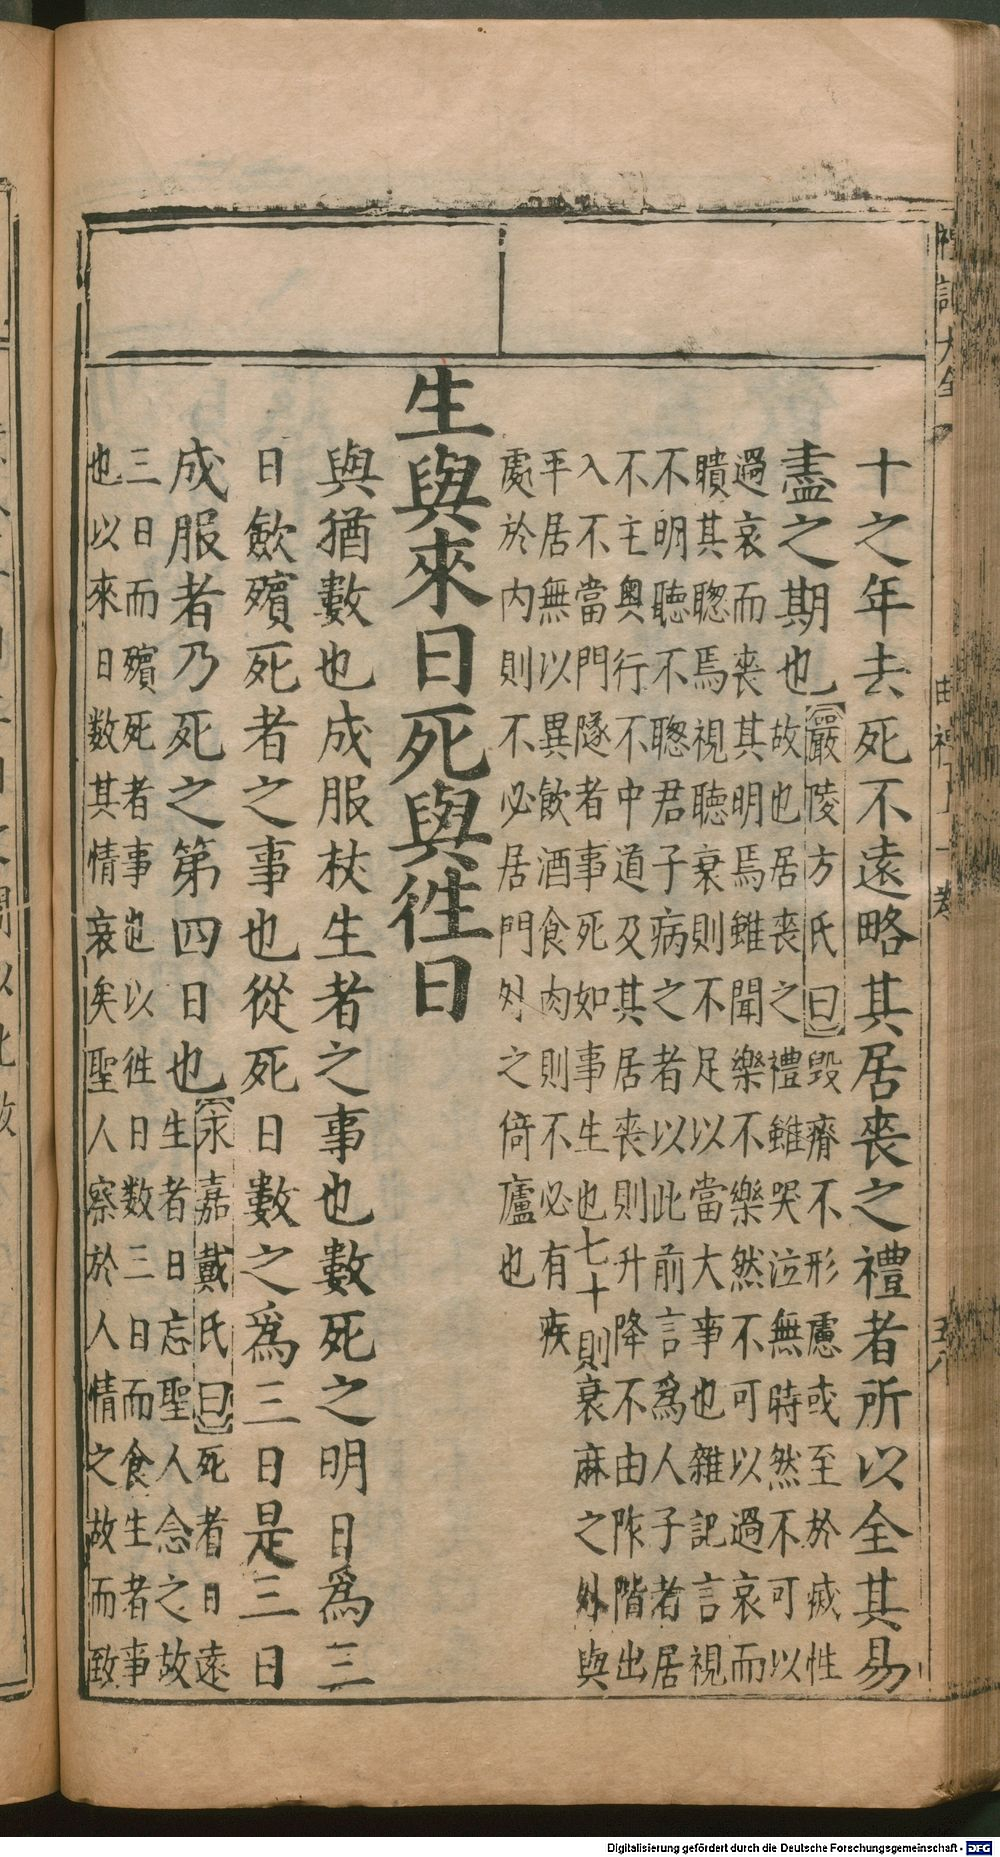 禮記大全
曲禮上一卷
五八
十之年去死不遠略其居喪之禮者所以全其易
盡之期也
嚴陵方氏曰毀瘠不形慮或至於㓕性
故也居喪之禮雖哭泣無時然不可以
過哀而喪其明焉雖聞樂不樂然不可以過哀而
聵其聰焉視聽衰則不足以當大事也雜記言視
不明聽不聰君子病之者以此前言爲人子者居
不主奧行不中道及其居喪則升降不由阼階出
入不當門隧者事死如事生也七十則衰麻之外與
平居無以異飲酒食肉則不必有疾
處於內則不必居門外之倚廬也
生與來日死與徃日
與猶數也成服杖生者之事也數死之明日爲三
日歛殯死者之事也從死日數之爲三日是三日
成服者乃死之第四日也
永嘉戴氏曰死者日遠
生者日忘聖人念之故
三日而殯死者事也以徃日数三日而食生者事
也以來日数其情哀矣聖人察於人情之故而致
Digitalisierung gefördert durch die Deutsche Forschungsgemeinschaft - DFG